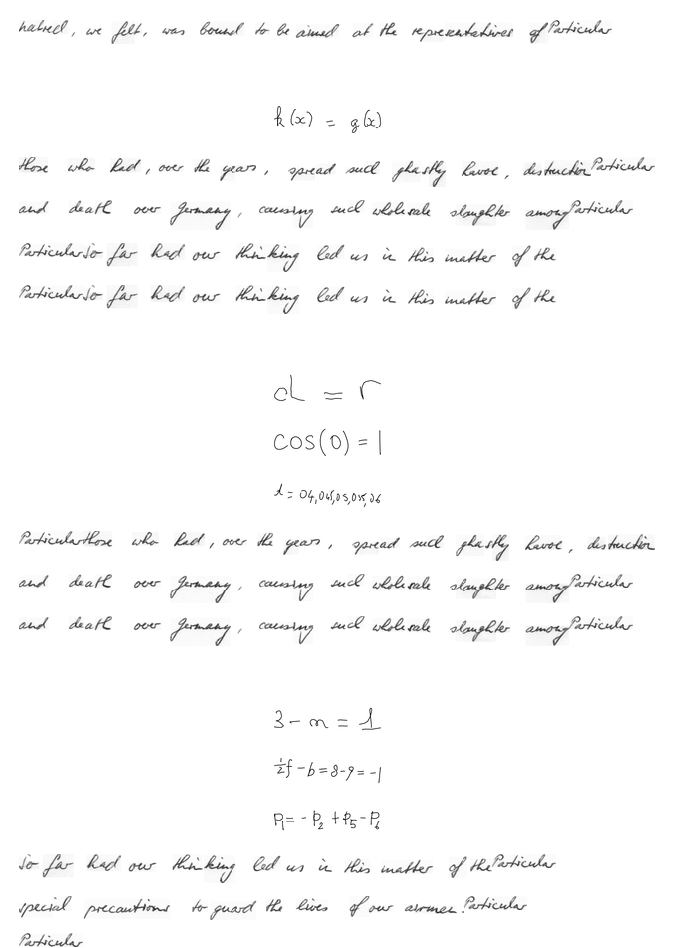 hatred, we felt, was bound to be aimed at the representatives of Particular
k(x) = g(x)
those who had, over the years, spread such ghastly havoc, destruction Particular
and death over Germany, causing such wholesale slaughter among Particular
Particular So far had our thinking led us in this matter of the
Particular So far had our thinking led us in this matter of the
d = r
cos(0) = 1
d = 04,045,05,055,06
Particular those who had, over the years, spread such ghastly havoc, destruction
and death over Germany, causing such wholesale slaughter among Particular
and death over Germany, causing such wholesale slaughter among Particular
3 - n = 1
½f - b = 8 - 9 = -1
P₁ = - P₂ + P₅ - P₆
So far had our thinking led us in this matter of the Particular
special precautions to guard the lives of our airmen. Particular
Particular